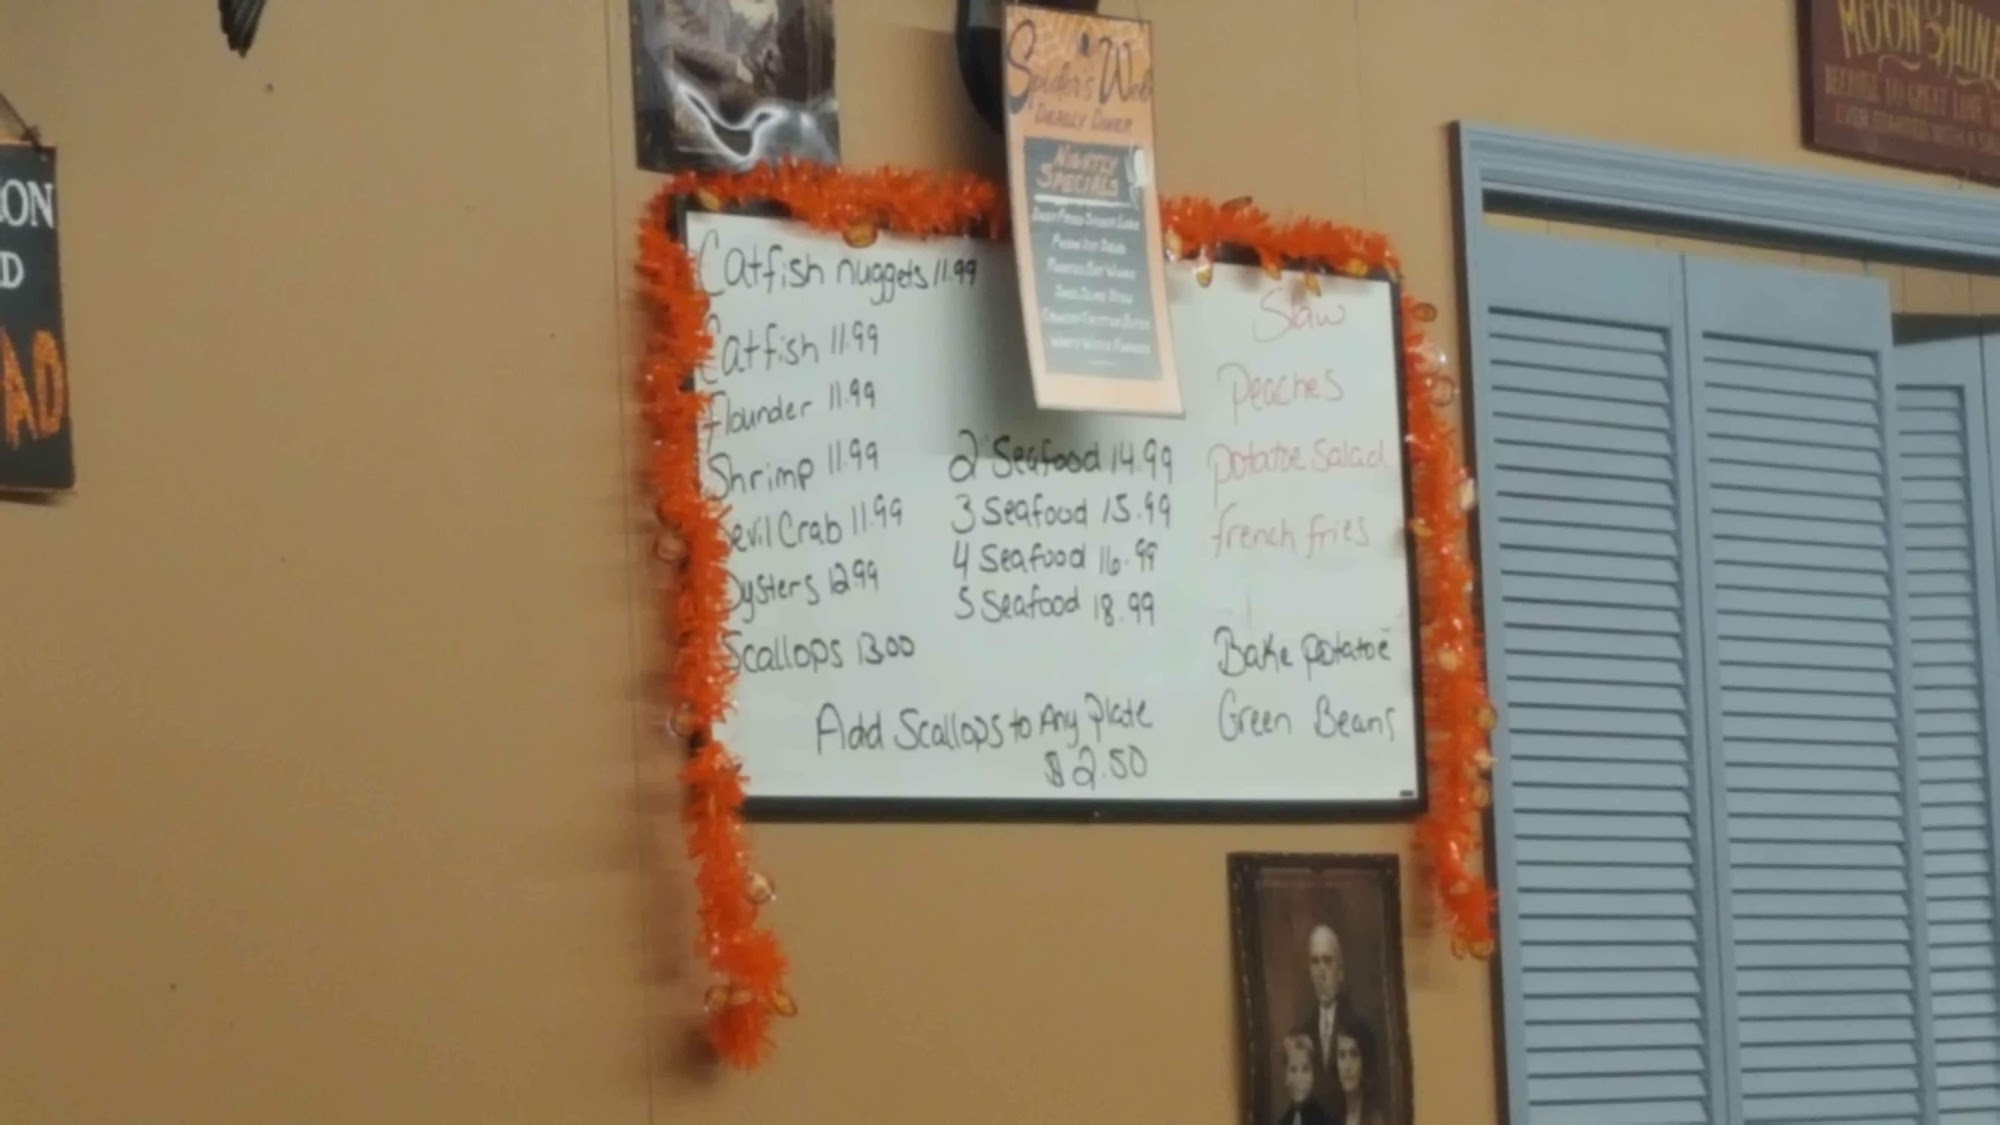 Spider's Web
Deadly Diner
Nightly
Specials
MOON SHINE
ON
D
AD
Catfish nuggets 11.99
Catfish 11.99
Flounder 11.99
Shrimp 11.99
Devil Crab 11.99
Oysters 12.99
Scallops 13.00
2 Seafood 14.99
3 Seafood 15.99
4 Seafood 16.99
5 Seafood 18.99
Add Scallops to Any Plate
$2.50
Slaw
Peaches
potatoe salad
french fries
Bake potatoe
Green Beans